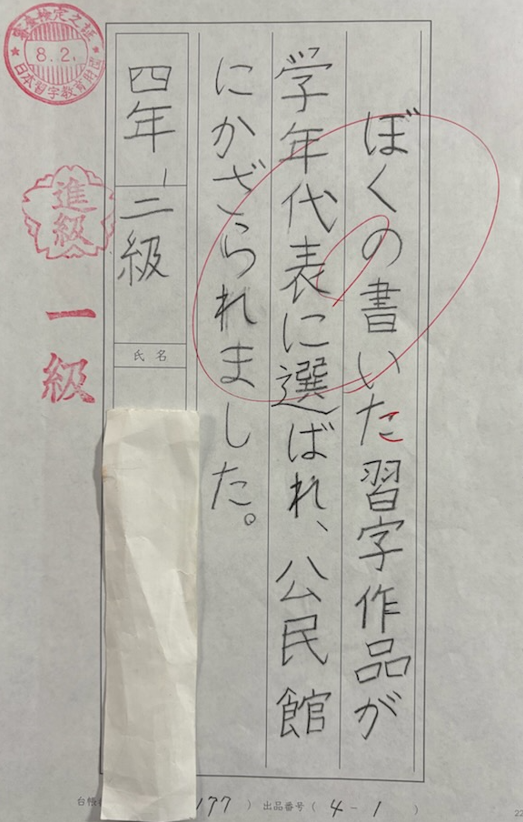 ぼくの書いた習字作品が
学年代表に選ばれ、公民館
にかざられました。
四年 二級
氏名
8.2.
日本習字教育財団
進級
一級
台帳
177 ) 出品番号 ( 4-1 )